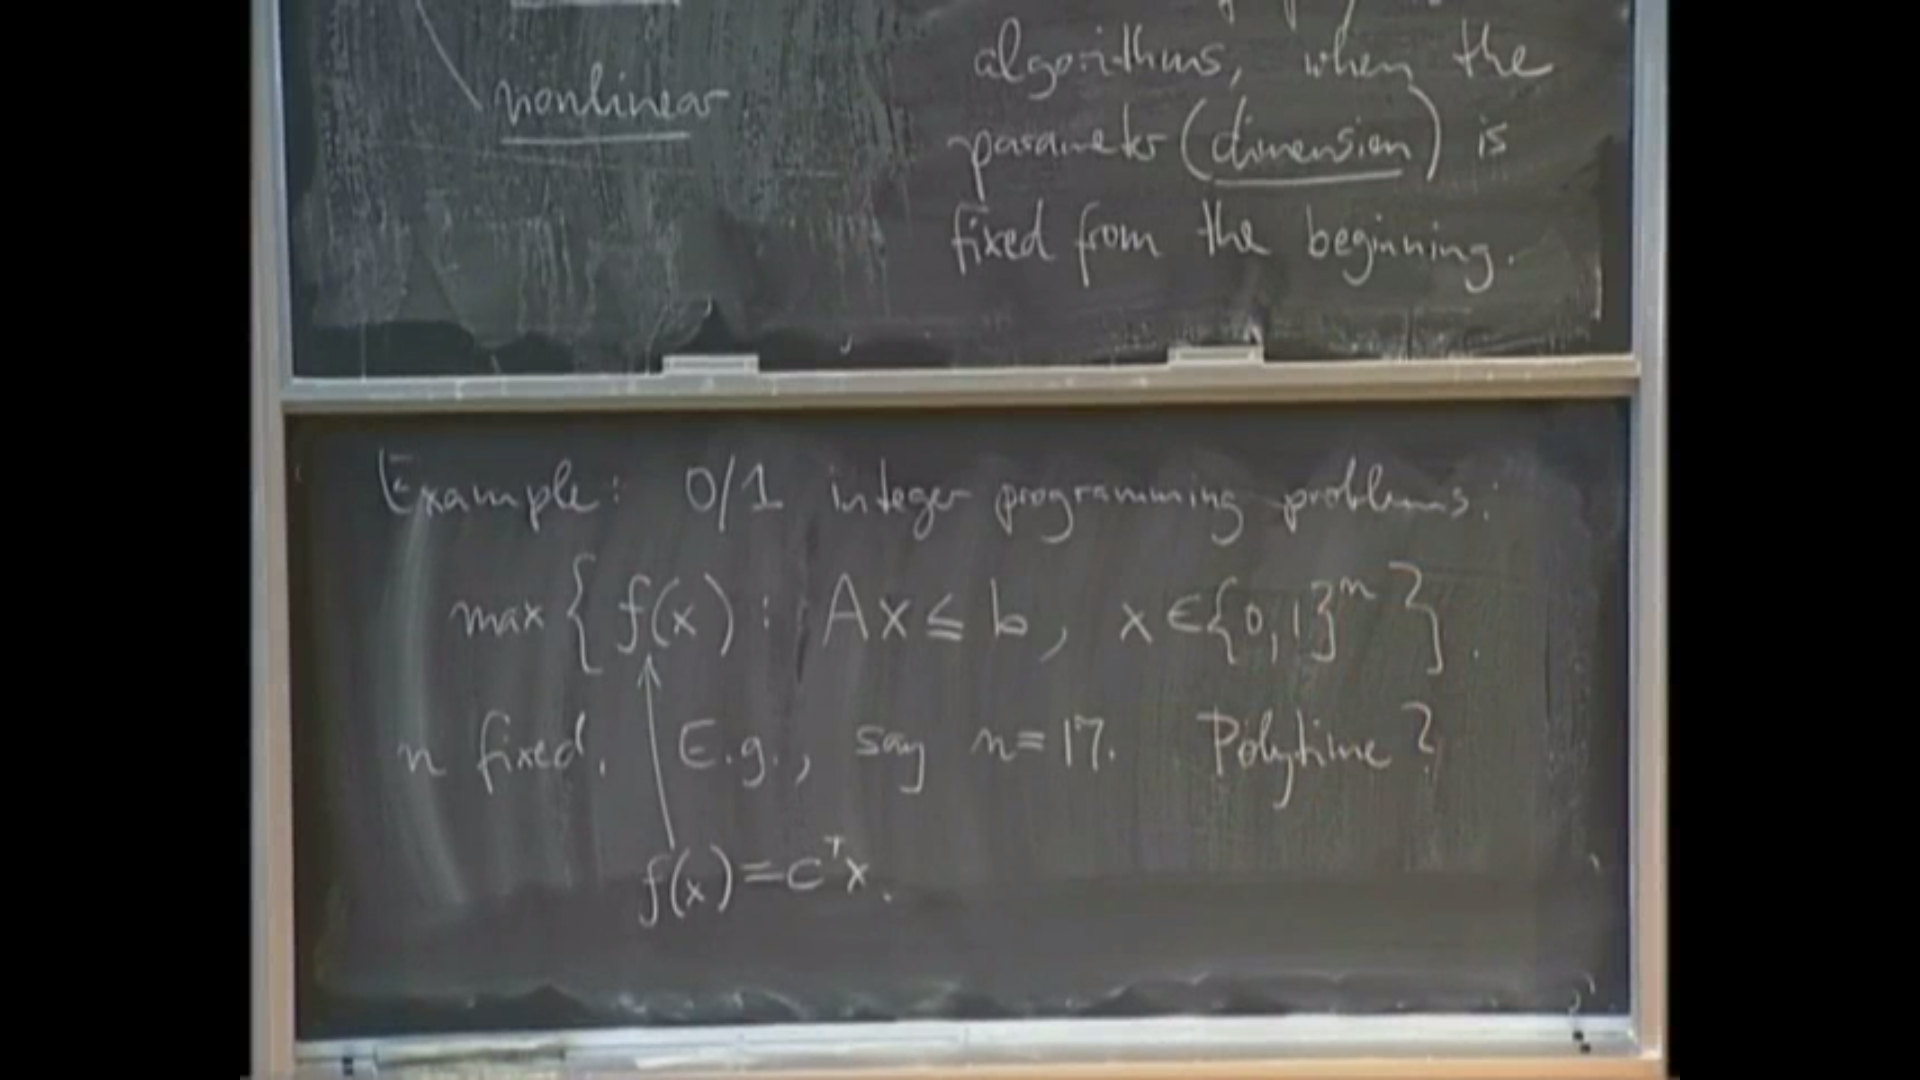 nonlinear
algorithms, when the
parameter (dimension) is
fixed from the beginning.
Example: 0/1 integer programming problems:
max { f(x) : Ax ≤ b, x ∈ {0,1}ⁿ }.
n fixed. E.g., say n = 17. Polytime?
f(x) = cᵀx.